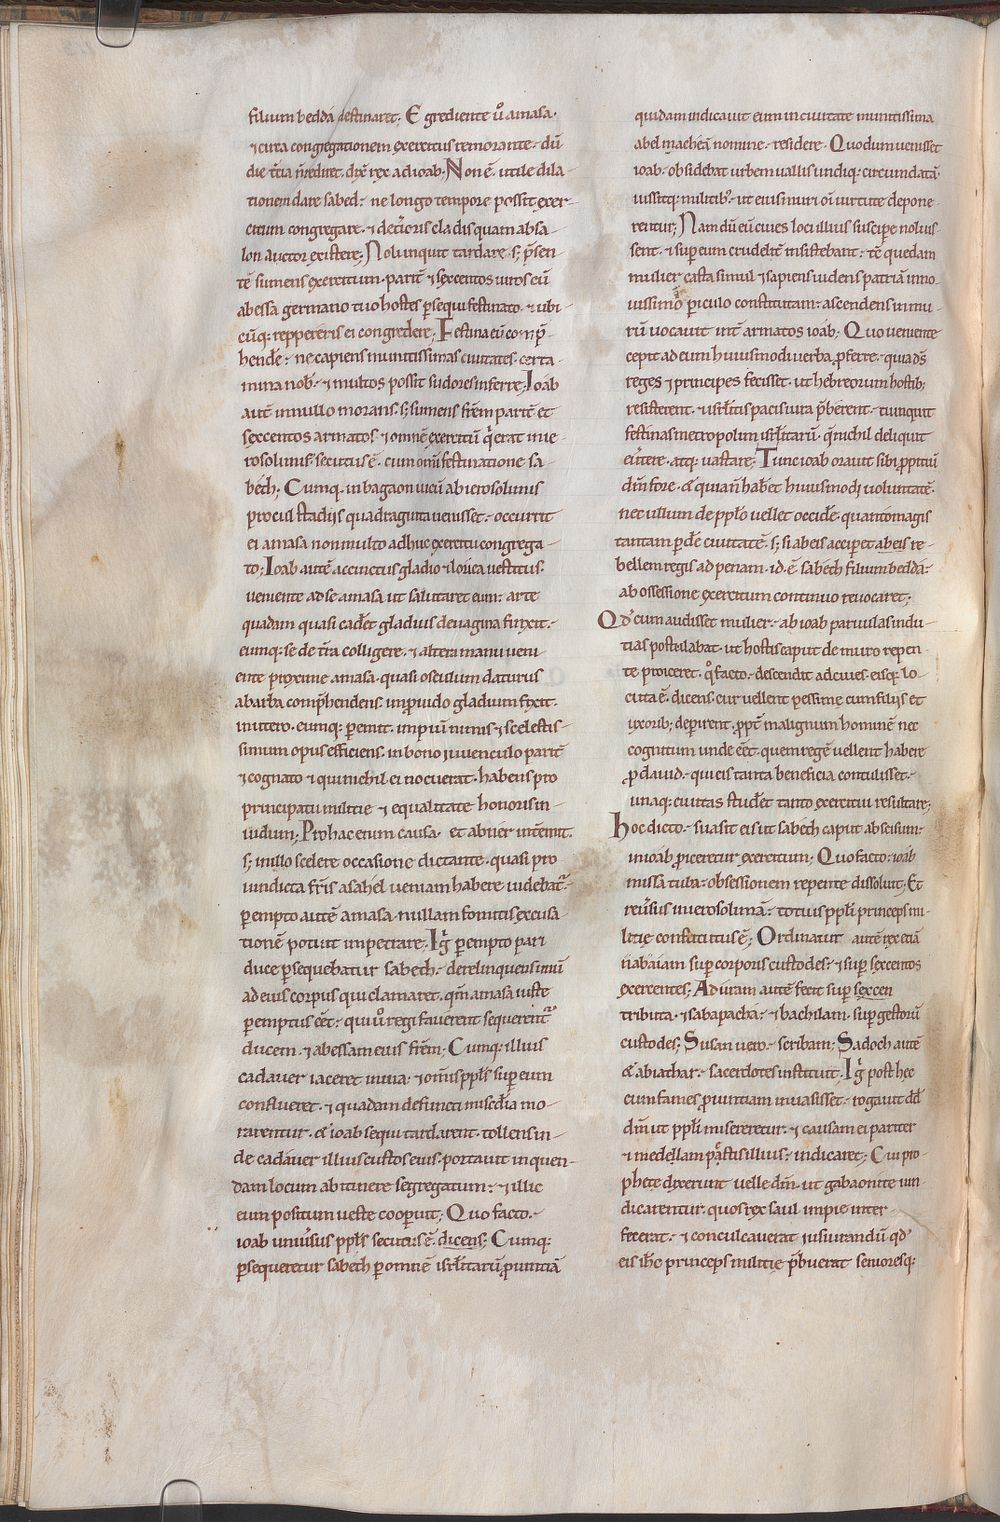 filium beddá destinaret; Egrediente ů amasa·
⁊ circa congregationem exercitus remorante· dū
die t̄cia ñ rediret· dix̄ rex ad ioab· Non ē utile dila-
tionem dare sabed· ne longo tempore possit exer-
citum congregare· ⁊ det̄ioris cladis quam absa-
lon auctor existere; Noli inquit tardare· s; p̄sen-
tē sumens exercitum· parit̄ ⁊ sexcentos uiros cū
abessa germano tuo hostes p̱sequi festinato· ⁊ ubi-
cūq; reppereris ei congredere; Festina eū comp̄-
hende· ne capiens munitissimas ciuitates· certa-
mina nob· ⁊ multos possit sudores inferre; Ioab
aut̄ in nullo morans· s; sumens fr̄em parit̄ et
sexcentos armatos· ⁊ omnē exercitū q̇ erat in ie-
rosolimis· secutus ē· cum om̄i festinatione sa-
bech; Cumq· in bagaon uicū ab ierosolimis
procul stadiis quadraginta uenisset· occurrit
ei amasa non multo adhuc exercitu congrega-
to; Ioab autē accinctus gladio ⁊ lorica uestitus·
ueniente ad se amasa ut salutaret eum· arte
quadam quasi cadet̄ gladius de uagina finxit·
eumq; se de t̄ra colligere· ⁊ altera manu ueni-
ente proxime amasa· quasi osculum daturus
a barba comp̄hendens· inprouido gladium fixit·
in utero· cumq; p̱emit· impiū nimis· ⁊ scelestis-
simum opus efficiens· in bono iuuenculo parit̄
⁊ cognato ⁊ qui nichil ei nocuerat· habens pro
principatu militie ⁊ equalitate honoris in-
uidiam; Pro hac enim causa et abner int̄emit·
s; in illo scelere occasione dictante· quasi pro
uindicta fr̄is asahel ueniam habere uidebat̄·
p̱empto autē amasa· nullam fomitis excusa-
tionē potuit impetrare; Iḡ p̱empto pari
duce p̱sequebatur sabech· derelinquens unū
ad eius corpus qui clamaret· qm̄ amasa iuste
p̱emptus eēt· qui ů regi fauerent sequerent̄
ducem· ⁊ abessam eius fr̄em; Cumq; illius
cadauer iaceret in uia· ⁊ om̄is pp̄ls sup̱ eum
conflueret· ⁊ quadam defuncti misc̄dia mo-
rarentur· & ioab sequi tardarent· tollens in-
de cadauer illius custos eius· portauit in quen-
dam locum ab itinere segregatum· ⁊ illic
eum positum ueste cooperuit; Quo facto·
ioab uniůsus pp̄ls secutus ē· dicens; Cumq;
p̱sequeretur sabech p̱ omnē isrl̄itarū p̱uintiā
quidam indicauit eum in ciuitate munitissima
abel macheā nomine· residere· Quo dum uenisset
ioab· obsidebat urbem uallis undiq· circundatā·
iussitq; militib;· ut eius muri om̄i uirtute depone-
rentur; Nam dū eū ciues loci illius suscipe noluis-
sent· ⁊ sup̱ eum crudelit̄ insistebant· t̄c quedam
mulier casta simul ⁊ sapiens uidens patriā in no-
uissimo p̱iculo constitutam· ascendens in mu-
rū uocauit int̄ armatos ioab; Quo ueniente
cepit ad eum huiusmodi uerba p̱ferre· quia d̄s
reges ⁊ principes fecisset· ut hebreorum hostib;
resisterent· ⁊ isrl̄itis pacis iura p̄berent· tu inquit
festinas metropolim isrl̄itarū· q̄ nichil deliquit
eůtere· atq; uastare; Tunc ioab orauit sibi p̱pitiū
dn̄m fore· & quia ñ hab&̄ huiusmodi uoluntatē·
nec ullum de pp̄lo uellet occide· quanto magis
tantam p̱de ciuitatē· s; si ab eis accip&̄ ab eis re-
bellem regis ad penam· id· ē sabech filium beddá·
ab ossessione exercitum continuo reuocaret;
Qd̄ cum audisset mulier· ab ioab paruulas indu-
tias postulabat· ut hostis caput de muro repen-
te proiceret· q̊ facto· descendit ad ciues· eisq; lo-
cuta ē· dicens· cur uellent pessime cum filiis et
uxorib; deperirent· p̱pt̄ malignum hominē nec
cognitum unde eēt· quem regē uellent habere
p̱ dauid· qui eis tanta beneficia contulisset·
unaq; ciuitas stud&̄ tanto exercitui resultare;
Hoc dicto· suasit eis ut sabech caput abscisum·
in ioab p̱iceretur exercitum; Quo facto· ioab
missa tuba· obsessionem repente dissoluit; Et
reůsus in ierosolimā· totius pp̄li princeps mi-
litie constitutus ē; Ordinauit autē rex etiā
nabaiam sup̱ corporis custodes· ⁊ sup̱ sexcentos
exercentes; Aduram autē fecit sup̱ sexcen
tributa· ⁊ sabapachá· ⁊ bachilam· sup̱ gestorū
custodes; Susan uero· scribam; Sadoch autē
& abiathar· sacerdotes instituit; Iḡ post hec
cum fames p̱uintiam inuasisset· rogauit dd̄
dn̄m ut pp̄li misereretur· ⁊ causam ei pariter
⁊ medellam pāstis illius· indicaret; Cui pro-
phete dixerunt uelle dn̄m· ut gabaonite uin-
dicarentur· quos rex saul impie inter-
fecerat· ⁊ conculcauerat iusiurandū qd̄
eis ih̄c princeps militie p̄buerat senioresq;